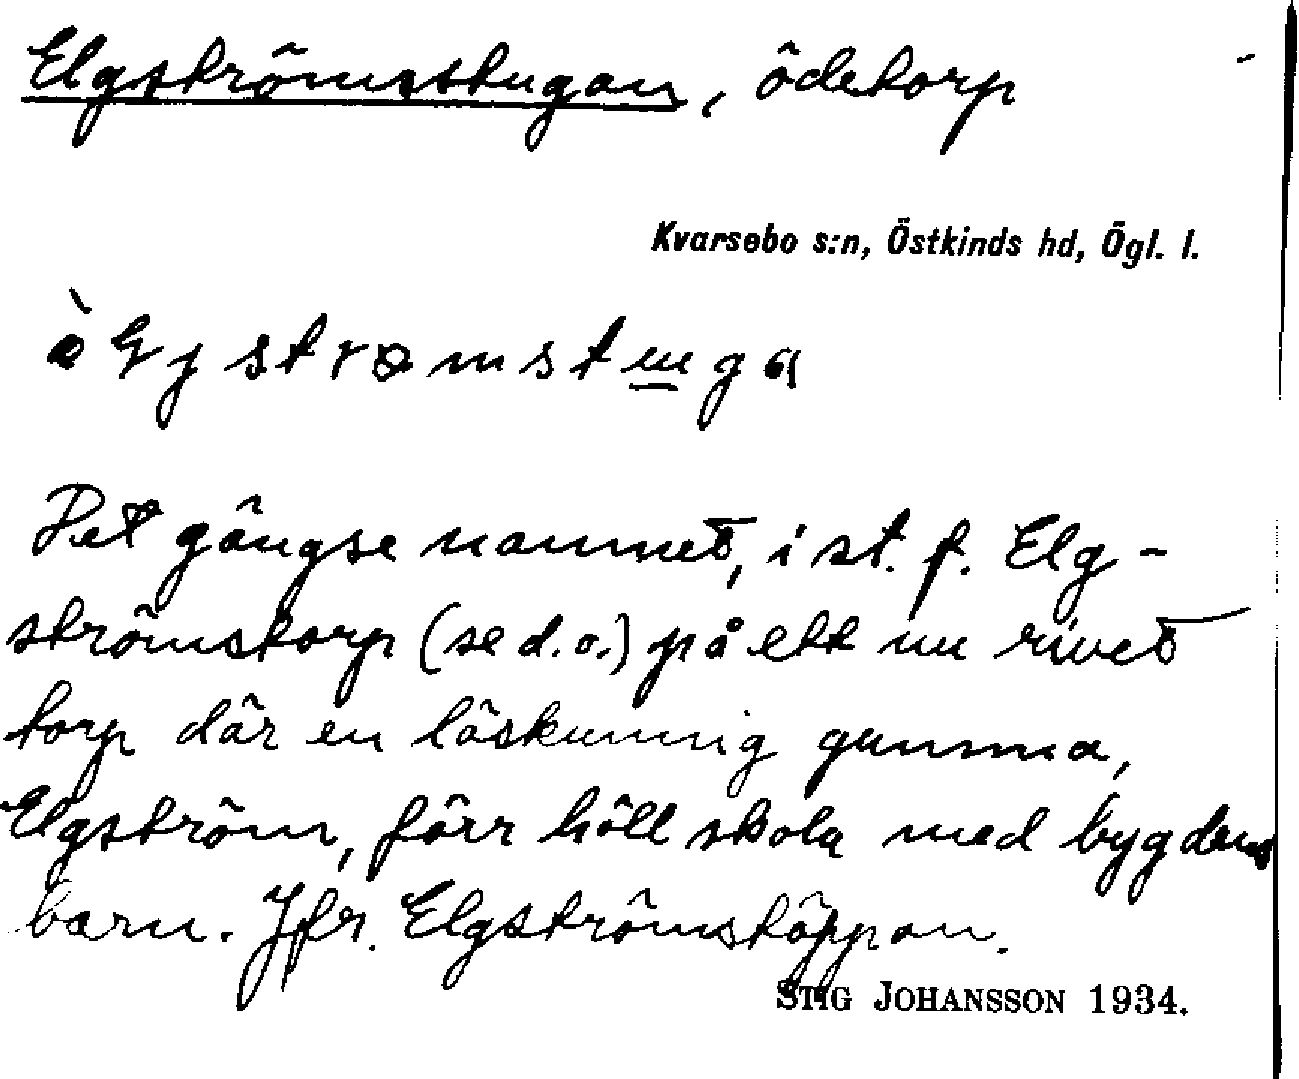 Elgströmsstugan, ödetorp
Kvarsebo s:n, Östkinds hd, Ögl. l.
Det gängse namnet, i st. f. Elg-
strömstorp (se d. o.) på ett nu rivet
torp där en läskunnig gumma,
Elgström, förr höll skola med bygdens
barn. Jfr. Elgströmstäppan.
STIG JOHANSSON 1934.